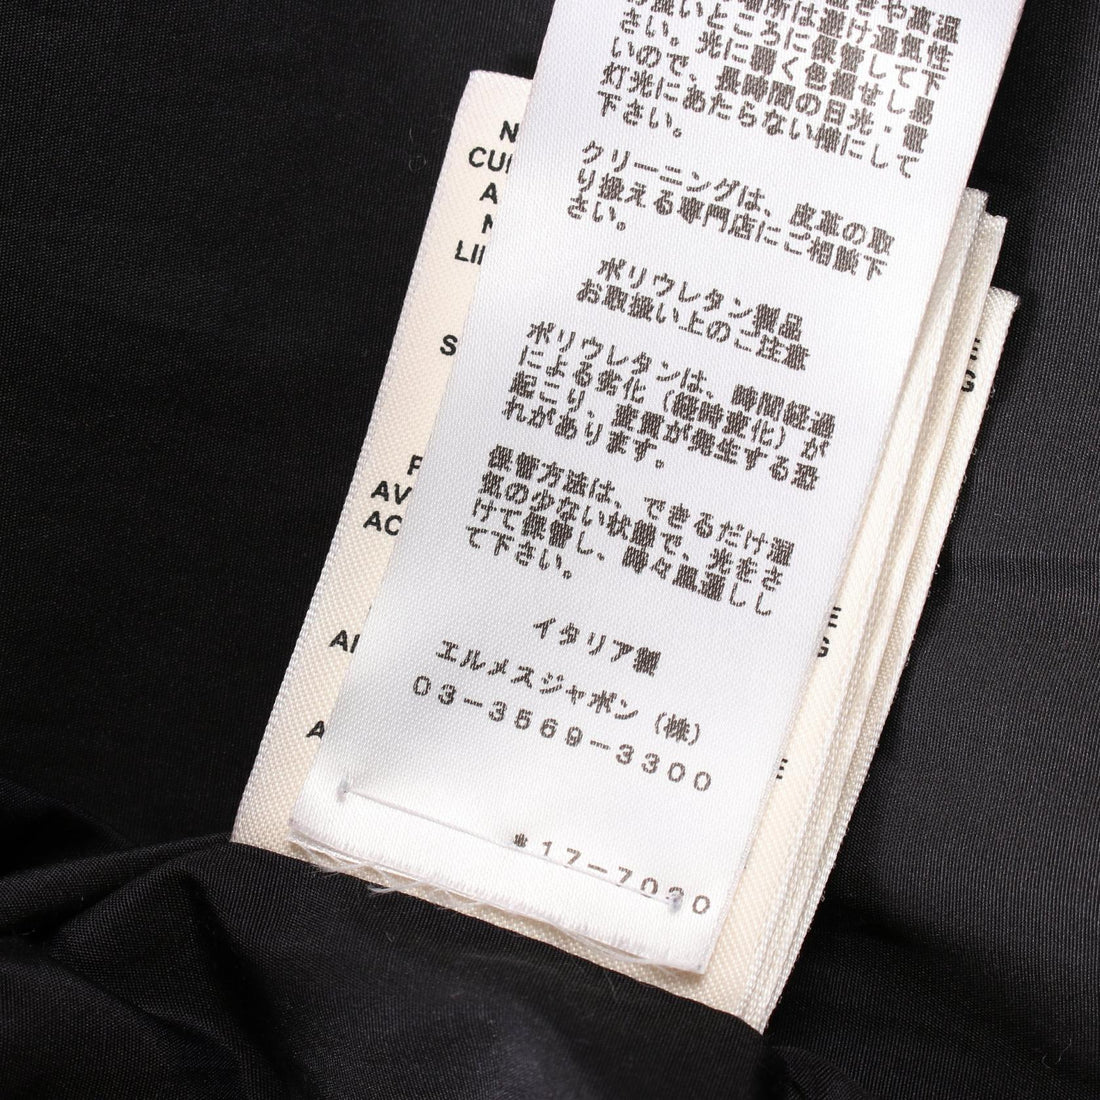 や高温
場所は避け通気性
良いところに保管して下
さい。光に弱く色褪せし易
いので、長時間の日光・電
灯光にあたらない様にして
下さい。
クリーニングは、皮革の取
り扱える専門店にご相談下
さい。
ポリウレタン製品
お取扱い上のご注意
ポリウレタンは、時間経過
による劣化（経時変化）が
起こり、変質が発生する恐
れがあります。
保管方法は、できるだけ湿
気の少ない状態で、光をさ
けて保管し、時々風通しし
て下さい。
イタリア製
エルメスジャポン（株）
03-3569-3300
*17-7030
N
CU
A
N
LI
S
AV
AC
A
A
E
G
E